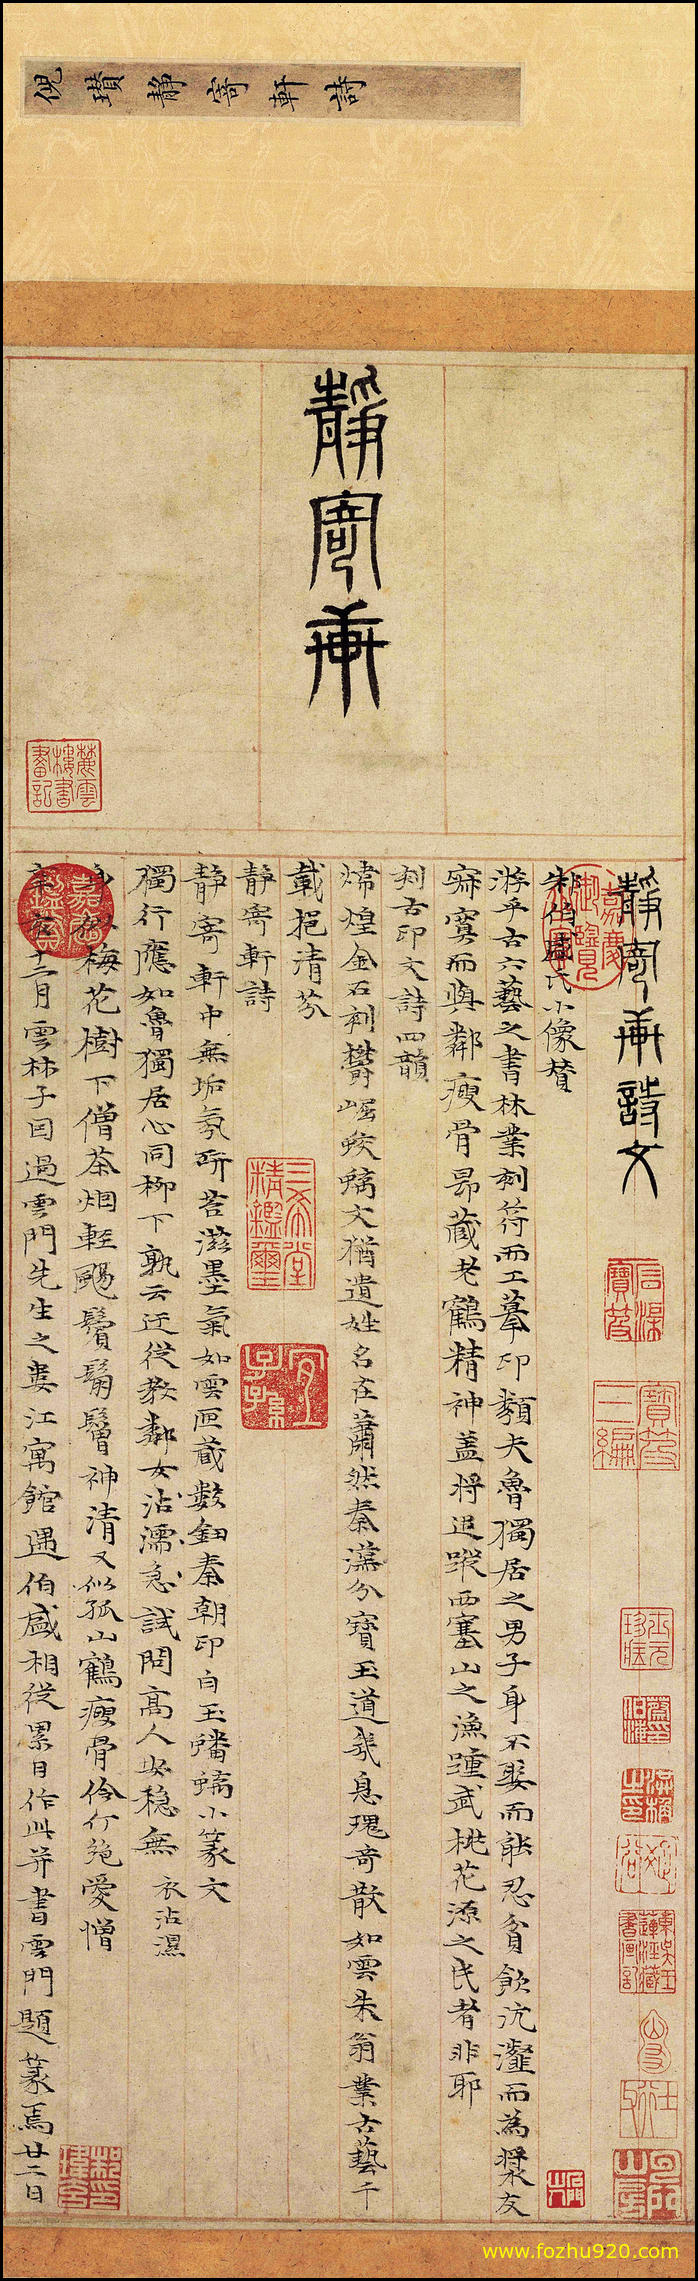 倪瓚静寄軒詩
靜寄軒
靜寄軒詩文
朱伯盛氏小像贊
游乎古六藝之書林業刻符而工摹印類夫魯獨居之男子身不娶而能忍貧飲沆瀣而為漿友
寂寞而與鄰瘦骨昂藏老鶴精神蓋將追蹤西塞山之漁踵武桃花源之民者非耶
刻古印文詩四韻
煒煌金石刻欝崛蛟螭文猶遺姓名在蕭然秦漢分寶玉道幾息瑰奇散如雲朱翁業古藝千
載挹清芬
靜寄軒詩
靜寄軒中無垢氛研苔滋墨氣如雲匣藏數鈕秦朝印白玉蟠螭小篆文
獨行應如魯獨居心同柳下孰云迂從教鄰女沾濡急試問高人安穩無 衣沾濕
梅花樹下僧茶烟輕颺鬢鬅鬙神清又似孤山鶴瘦骨伶仃絕愛憎
十二月雲林子回過雲門先生之婁江寓館遇伯盛相從累日作此并書雲門題篆焉廿二日
麓雲樓書畫記
嘉慶御覽之寶
嘉慶鑑賞
三希堂精鑑璽
宜子孫
石渠寶笈
寶笈三編
www.fozhu920.com